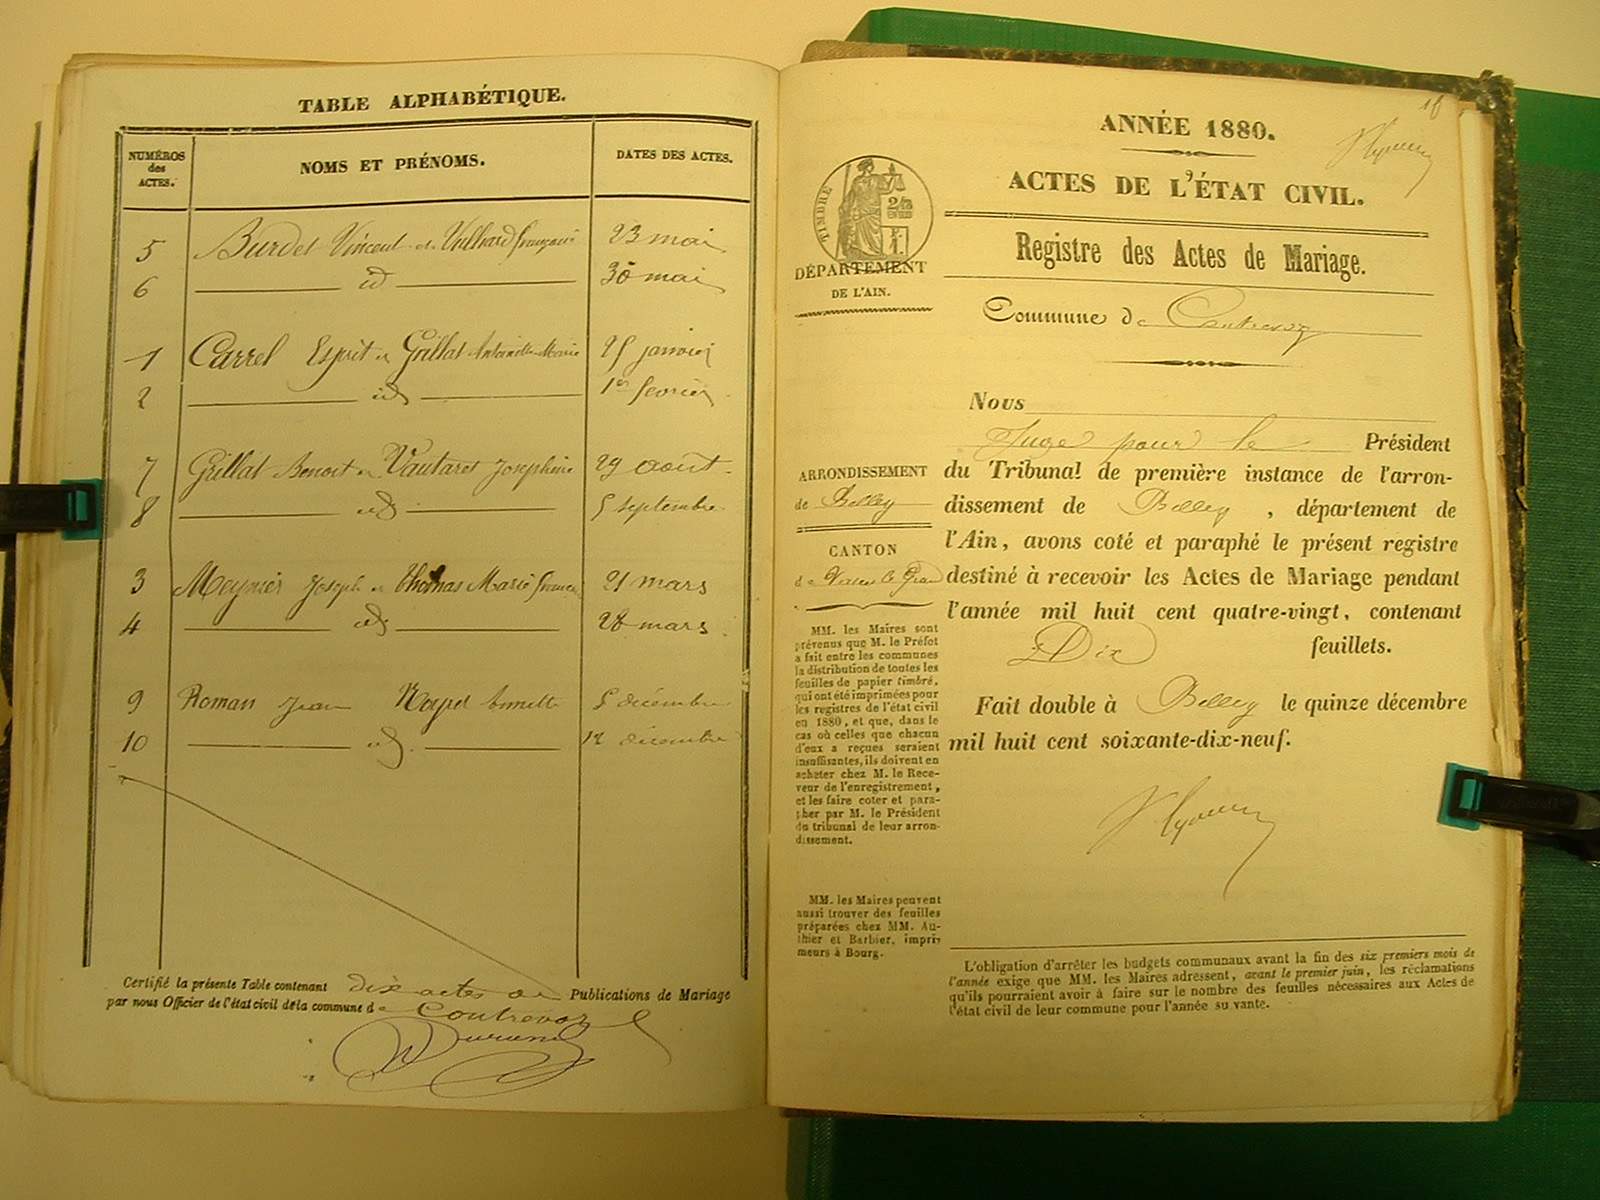 TABLE ALPHABÉTIQUE.
NUMÉROS des ACTES.
NOMS ET PRÉNOMS.
DATES DES ACTES.
5 Burdet Vincent et Vulliard françoise 23 mai
6 id 30 mai
1 Carrel Esprit et Grillat Antoinette Marie 25 janvier
2 id 1er fevrier
7 Grillat Benoit et Vautaret Josephine 29 août
8 id 5 septembre
3 Meynier Joseph et Thomas Marie 21 mars
4 id 28 mars
9 Roman Jean 5 décembre
10 id 12 décembre
Certifié la présente Table contenant dix actes de Publications de Mariage
par nous Officier de l'état civil de la commune de Contrevoz
Durand
ANNÉE 1880.
ACTES DE L'ÉTAT CIVIL.
TIMBRE
2/10
EN SUS
DÉPARTEMENT
DE L'AIN.
Registre des Actes de Mariage.
Commune de Contrevoz
Nous
Juge pour le Président
du Tribunal de première instance de l'arron-
dissement de Belley, département de
l'Ain, avons coté et paraphé le présent registre
destiné à recevoir les Actes de Mariage pendant
l'année mil huit cent quatre-vingt, contenant
Dix feuillets.
Fait double à Belley le quinze décembre
mil huit cent soixante-dix-neuf.
ARRONDISSEMENT
de Belley
CANTON
de Virieu le Grand
MM. les Maires sont
prévenus que M. le Préfet
a fait entre les communes
la distribution de toutes les
feuilles de papier timbré,
qui ont été imprimées pour
les registres de l'état civil
en 1880, et que, dans le
cas où celles que chacun
d'eux a reçues seraient
insuffisantes, ils doivent en
acheter chez M. le Rece-
veur de l'enregistrement,
et les faire coter et para-
pher par M. le Président
du tribunal de leur arron-
dissement.
MM. les Maires peuvent
aussi trouver des feuilles
préparées chez MM. Au-
thier et Barbier, impri-
meurs à Bourg.
L'obligation d'arrêter les budgets communaux avant la fin des six premiers mois de
l'année exige que MM. les Maires adressent, avant le premier juin, les réclamations
qu'ils pourraient avoir à faire sur le nombre des feuilles nécessaires aux Actes de
l'état civil de leur commune pour l'année suivante.